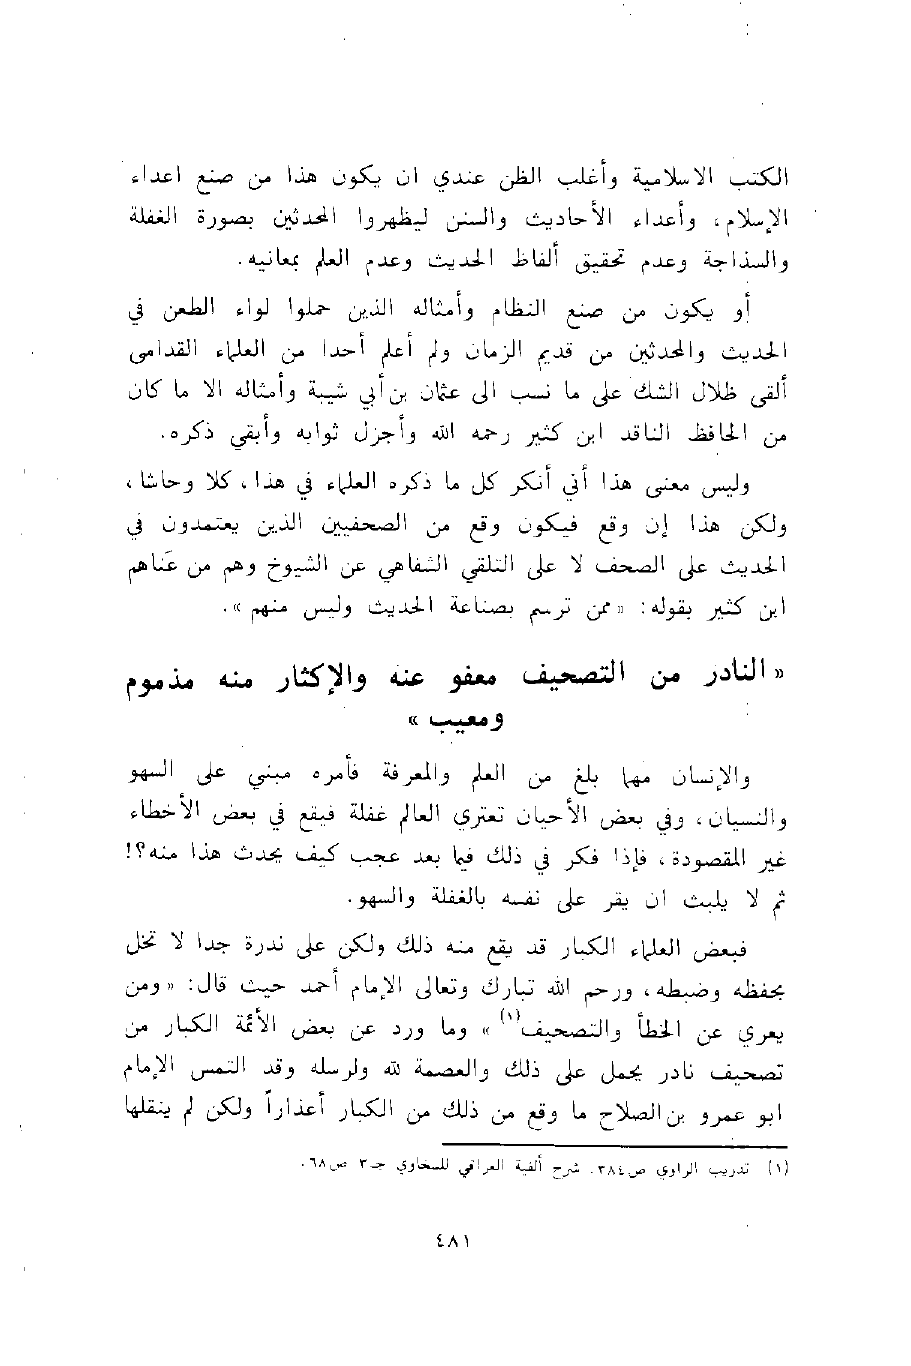 الكتب الاسلامية وأغلب الظن عندي ان يكون هذا من صنع اعداء
الإسلام، وأعداء الأحاديث والسنن ليظهروا المحدثين بصورة الغفلة
والسذاجة وعدم تحقيق ألفاظ الحديث وعدم العلم بمعانيه.
أو يكون من صنع النظام وأمثاله الذين حملوا لواء الطعن في
الحديث والمحدثين من قديم الزمان ولم أعلم أحدا من العلماء القدامى
ألقى ظلال الشك على ما نسب الى عثمان بن أبي شيبة وأمثاله الا ما كان
من الحافظ الناقد ابن كثير رحمه الله وأجزل ثوابه وأبقي ذكره.
وليس معنى هذا أني أنكر كل ما ذكره العلماء في هذا، كلا وحاشا،
ولكن هذا إن وقع فيكون وقع من الصحفيين الذين يعتمدون في
الحديث على الصحف لا على التلقي الشفاهي عن الشيوخ وهم من عَناهم
ابن كثير بقوله: «ممن ترسم بصناعة الحديث وليس منهم».
«النادر من التصحيف معفو عنه والإكثار منه مذموم
ومعيب»
والإنسان مهما بلغ من العلم والمعرفة فأمره مبني على السهو
والنسيان، وفي بعض الأحيان تعتري العالم غفلة فيقع في بعض الأخطاء
غير المقصودة، فإذا فكر في ذلك فيما بعد عجب كيف يحدث هذا منه؟!
ثم لا يلبث ان يقر على نفسه بالغفلة والسهو.
فبعض العلماء الكبار قد يقع منه ذلك ولكن على ندرة جدا لا تخل
بحفظه وضبطه، ورحم الله تبارك وتعالى الإمام أحمد حيث قال: «ومن
يعري عن الخطأ والتصحيف(١)» وما ورد عن بعض الأئمة الكبار من
تصحيف نادر يحمل على ذلك والعصمة لله ولرسله وقد التمس الإمام
ابو عمرو بن الصلاح ما وقع من ذلك من الكبار أعذاراً ولكن لم ينقلها
(١) تدريب الراوي ص٣٨٤. شرح ألفية العراقي للسخاوي جـ٣ ص٦٨.
٤٨١